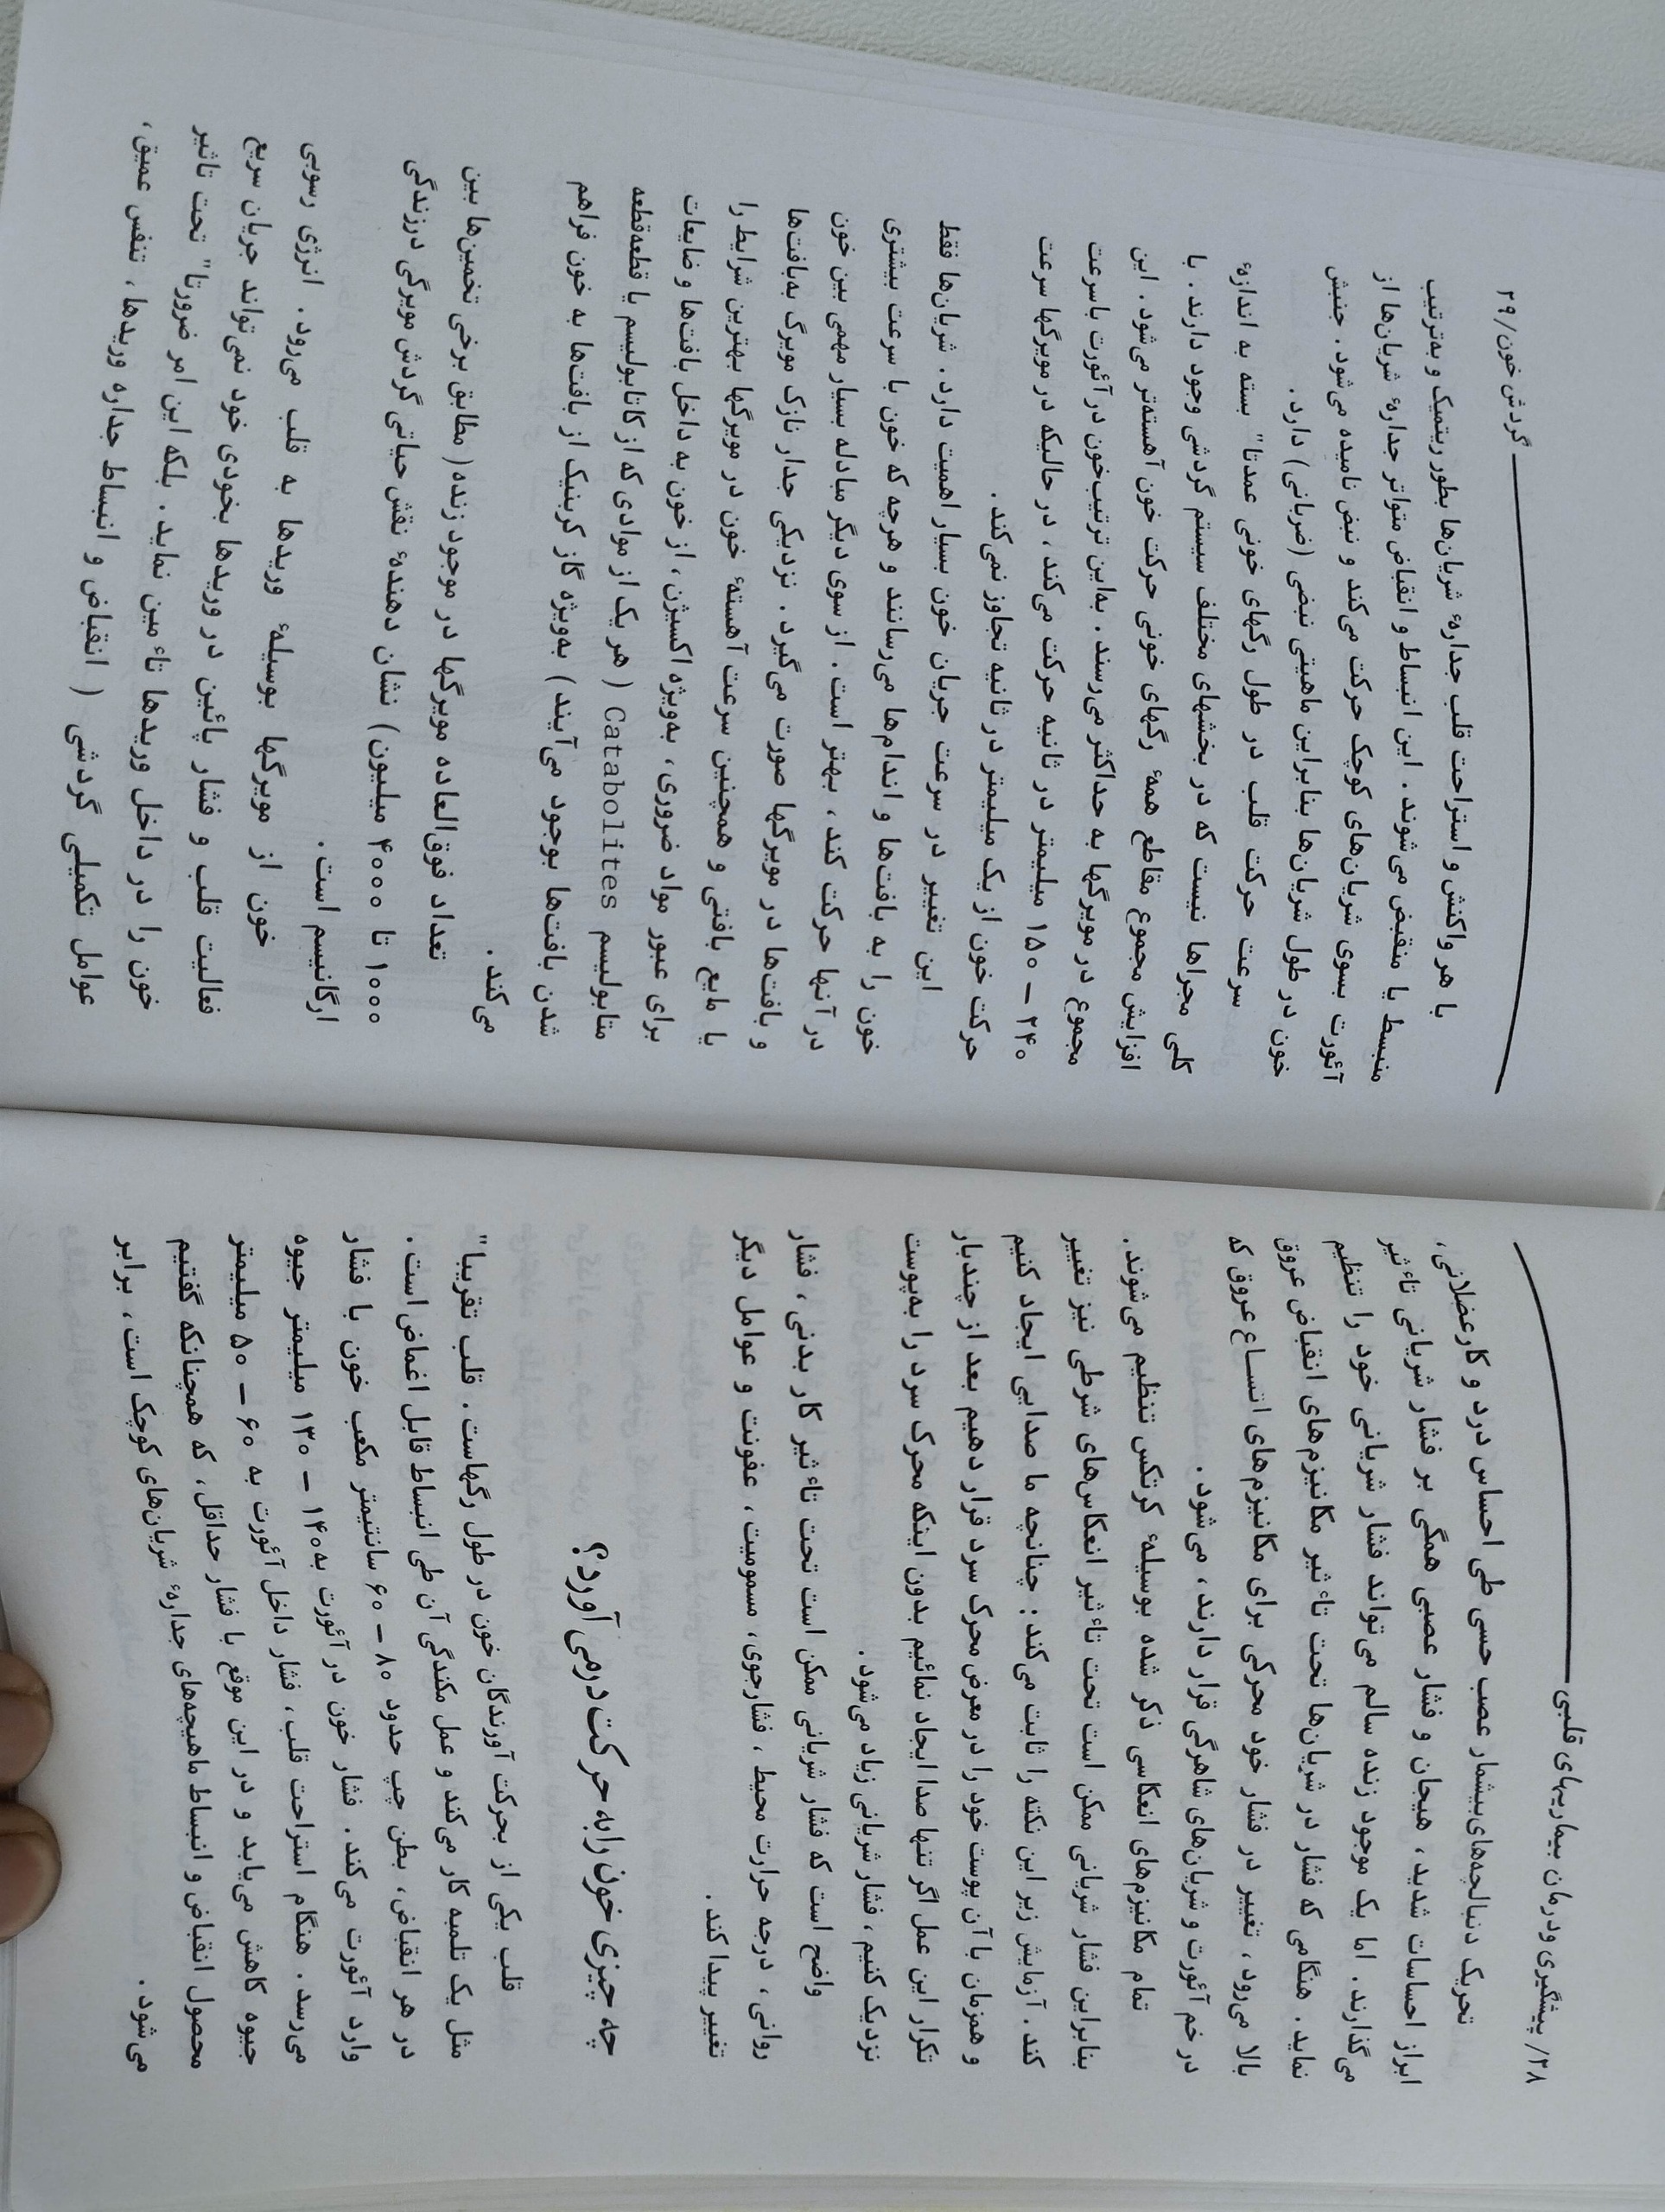 ۲۸/ پیشگیری ودرمان بیماریهای قلبی
تحریک دنبالچه‌های‌بیشمار عصب حسی طی احساس درد و کارعضلانی،
ابراز احساسات شدید، هیجان و فشار عصبی همگی بر فشار شریانی تاءثیر
می‌گذارند. اما یک موجود زنده سالم می‌تواند فشار شریانی خود را تنظیم
نماید. هنگامی که فشار در شریان‌ها تحت تاءثیر مکانیزم‌های انقباض عروق
بالا می‌رود، تغییر در فشار خود محرکی برای مکانیزم‌های اتساع عروق که
در خم آئورت و شریان‌های شاهرگی قرار دارند، می‌شود.
تمام مکانیزم‌های انعکاسی ذکر شده بوسیلهٔ کرتکس تنظیم می‌شوند.
بنابراین فشار شریانی ممکن است تحت تاءثیر انعکاس‌های شرطی نیز تغییر
کند. آزمایش زیر این نکته را ثابت می‌کند: چنانچه ما صدایی ایجاد کنیم
و همزمان با آن پوست خود را در معرض محرک سرد قرار دهیم بعد از چندبار
تکرار این عمل اگر تنها صدا ایجاد نمائیم بدون اینکه محرک سرد را به‌پوست
نزدیک کنیم، فشار شریانی زیاد می‌شود.
واضح است که فشار شریانی ممکن است تحت تاءثیر کار بدنی، فشار
روانی، درجه حرارت محیط، فشارجوی، مسمومیت، عفونت و عوامل دیگر
تغییر پیدا کند.
چه چیزی خون رابه حرکت درمی‌آورد؟
قلب یکی از بحرکت آورندگان خون در طول رگهاست. قلب تقریبا"
مثل یک تلمبه کار می‌کند و عمل مکندگی آن طی انبساط قابل اغماض است.
در هر انقباض، بطن چپ حدود ۸۰ – ۶۰ سانتیمتر مکعب خون با فشار
وارد آئورت می‌کند. فشار خون در آئورت به۱۴۰ – ۱۳۰ میلیمتر جیوه
می‌رسد. هنگام استراحت قلب، فشار داخل آئورت به ۶۰ – ۵۰ میلیمتر
جیوه کاهش می‌یابد و در این موقع با فشار حداقل، که همچنانکه گفتیم
محصول انقباض و انبساط ماهیچه‌های جدارهٔ شریان‌های کوچک است، برابر
می‌شود.
گردش خون/۲۹
با هر واکنش و استراحت قلب جدارهٔ شریان‌ها بطور ریتمیک و به‌ترتیب
منبسط یا منقبض می‌شوند. این انبساط و انقباض متواتر جدارهٔ شریان‌ها از
آئورت بسوی شریان‌های کوچک حرکت می‌کند و نبض نامیده می‌شود. جنبش
خون در طول شریان‌ها بنابراین ماهیتی نبضی (ضربانی) دارد.
سرعت حرکت قلب در طول رگهای خونی عمدتا" بسته به اندازهٔ
کلی مجراها نیست که در بخشهای مختلف سیستم گردشی وجود دارند. با
افزایش مجموع مقاطع همهٔ رگهای خونی حرکت خون آهسته‌تر می‌شود. این
مجموع در مویرگها به حداکثر می‌رسند. به‌این ترتیب‌خون در آئورت باسرعت
۲۴۰ – ۱۵۰ میلیمتر در ثانیه حرکت می‌کند، در حالیکه در مویرگها سرعت
حرکت خون از یک میلیمتر در ثانیه تجاوز نمی‌کند.
این تغییر در سرعت جریان خون بسیار اهمیت دارد. شریان‌ها فقط
خون را به بافت‌ها و اندام‌ها می‌رسانند و هرچه که خون با سرعت بیشتری
در آنها حرکت کند، بهتر است. از سوی دیگر مبادله بسیار مهمی بین خون
و بافت‌ها در مویرگها صورت می‌گیرد. نزدیکی جدار نازک مویرگ به‌بافت‌ها
یا مایع بافتی و همچنین سرعت آهستهٔ خون در مویرگها بهترین شرایط را
برای عبور مواد ضروری، به‌ویژه اکسیژن، از خون به داخل بافت‌ها و ضایعات
متابولیسم Catabolites (هر یک از موادی که از کاتابولیسم یا قطعه‌قطعه
شدن بافت‌ها بوجود می‌آیند) به‌ویژه گاز کربنیک از بافت‌ها به خون فراهم
می‌کند.
تعداد فوق‌العاده مویرگها در موجود زنده( مطابق برخی تخمین‌ها بین
۱۰۰۰ تا ۴۰۰۰ میلیون) نشان دهندهٔ نقش حیاتی گردش مویرگی درزندگی
ارگانیسم است.
خون از مویرگها بوسیلهٔ وریدها به قلب می‌رود. انرژی رسوبی
فعالیت قلب و فشار پائین در وریدها بخودی خود نمی‌تواند جریان سریع
خون را در داخل وریدها تاءمین نماید. بلکه این امر ضرورتا" تحت تاثیر
عوامل تکمیلی گردشی ( انقباض و انبساط جداره وریدها، تنفس عمیق،